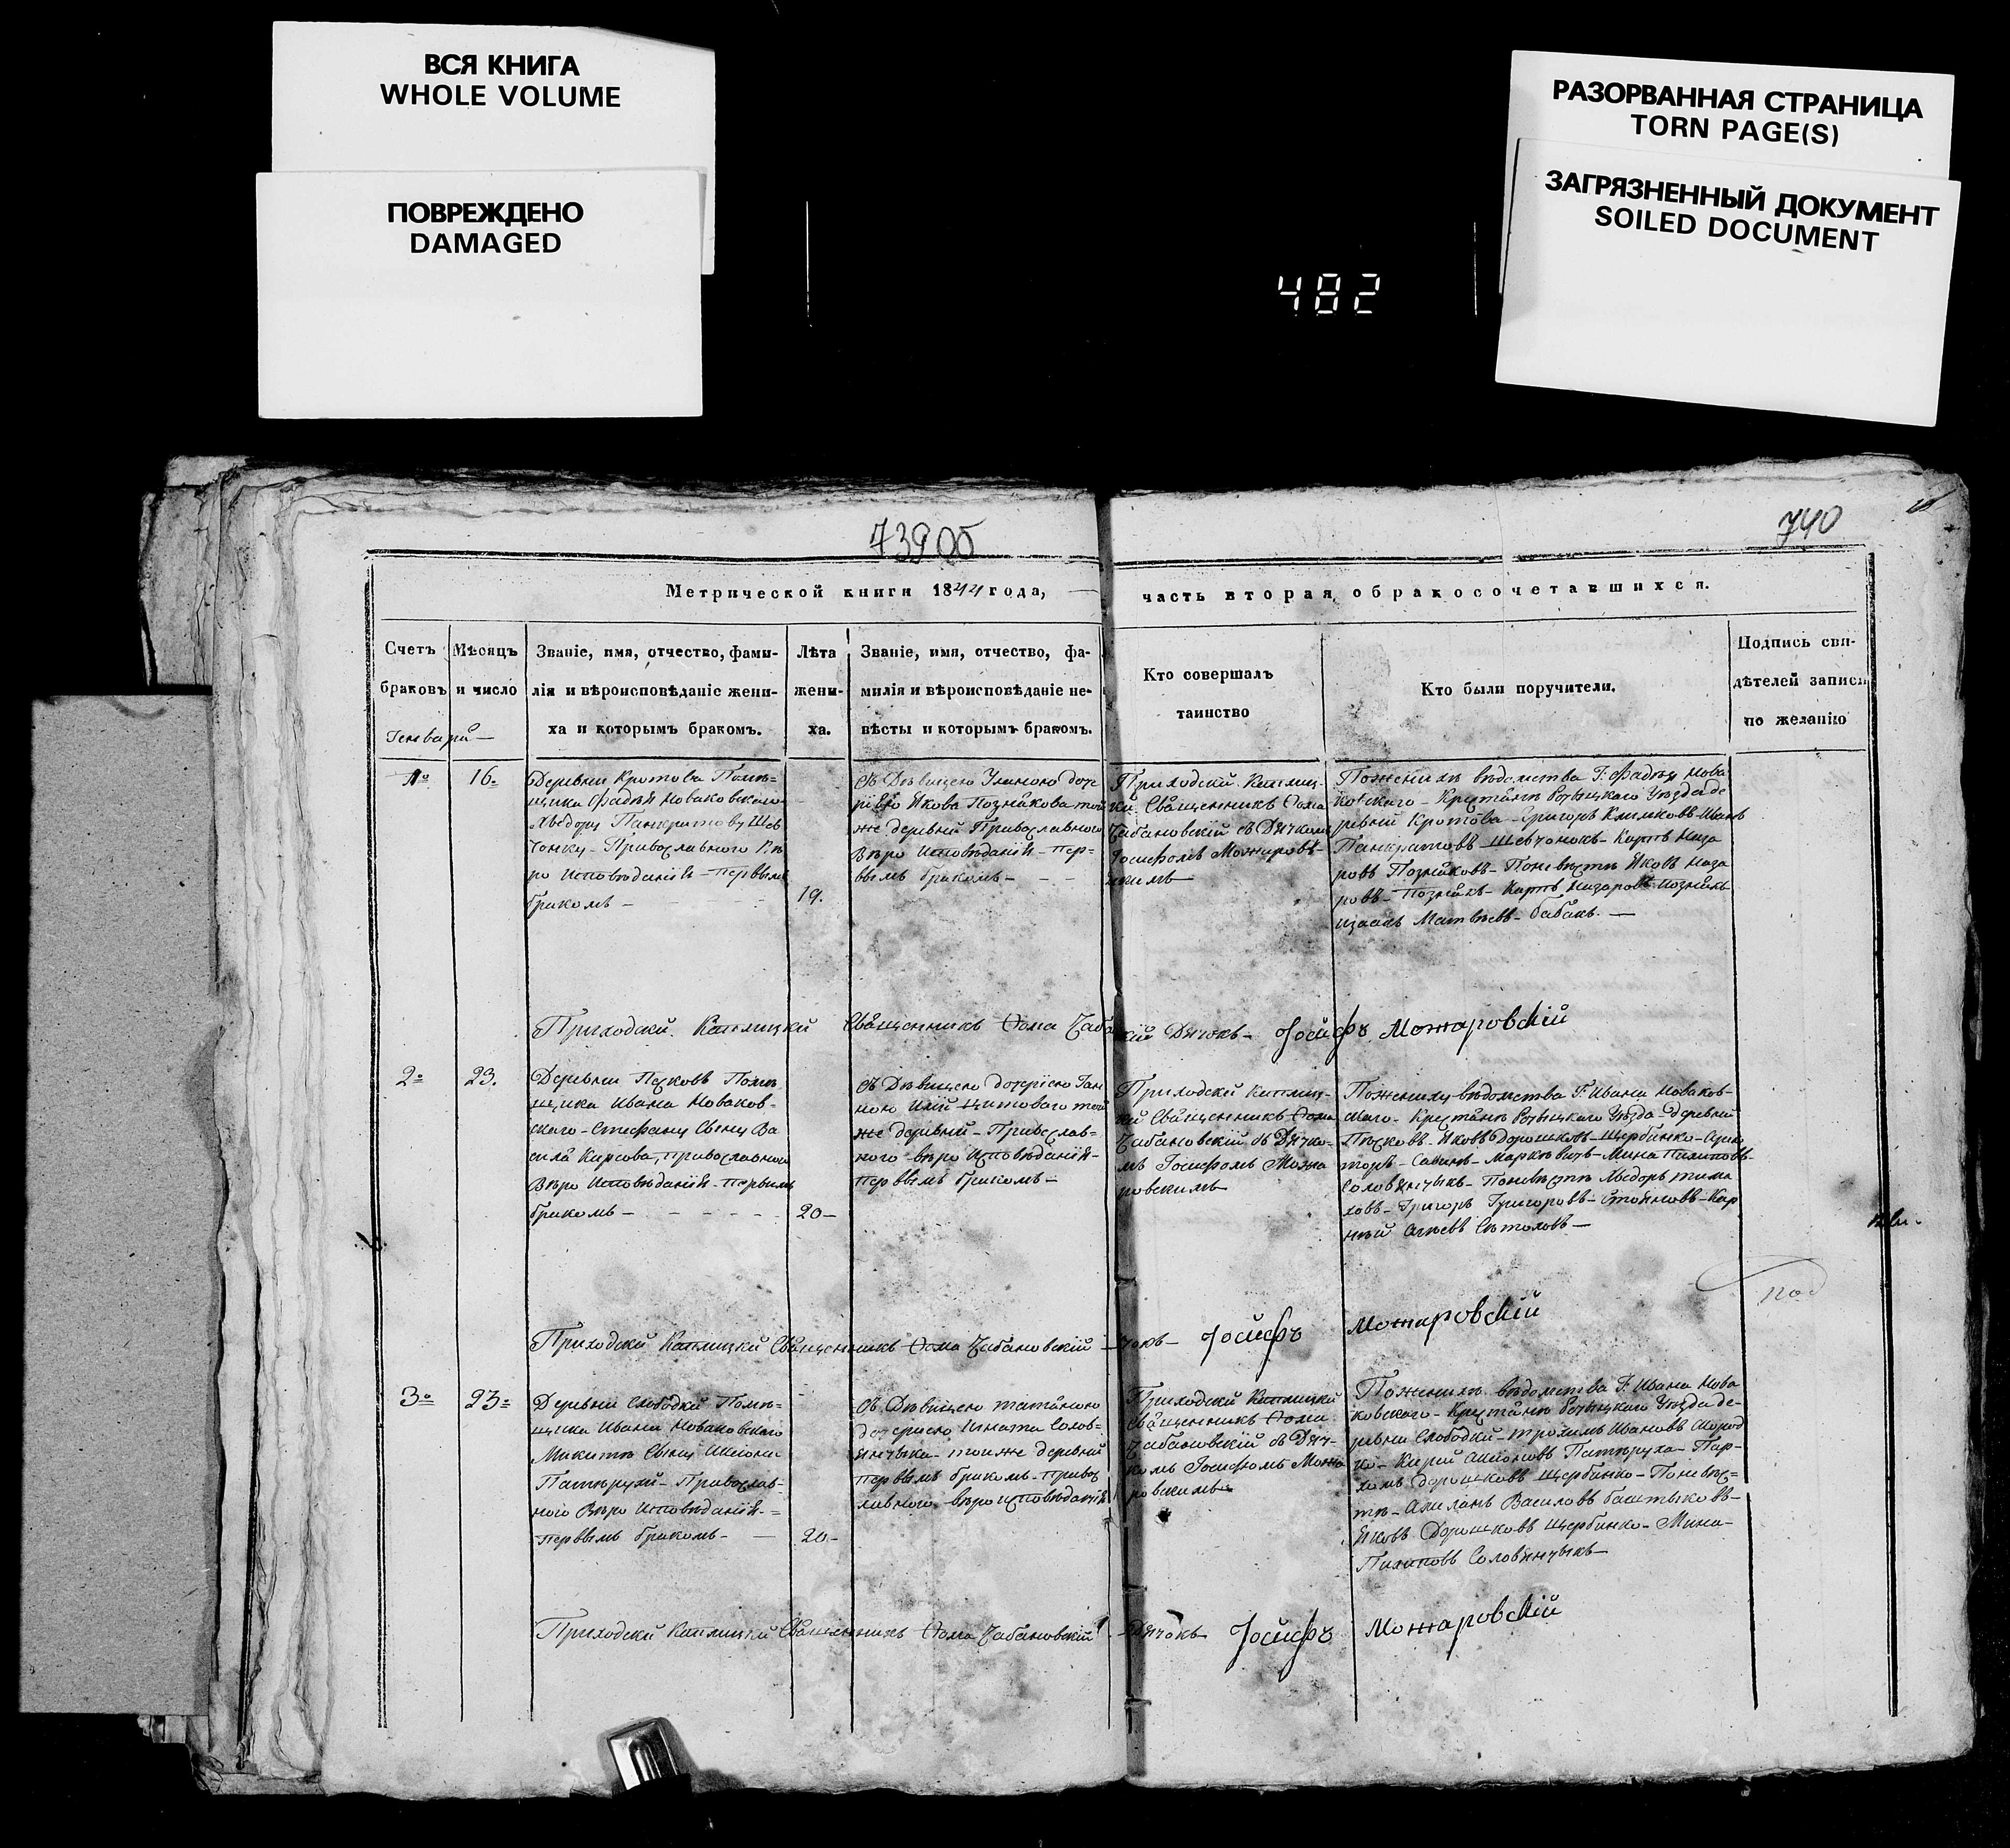 ВСЯ КНИГА
WHOLE VOLUME
ПОВРЕЖДЕНО
DAMAGED
РАЗОРВАННАЯ СТРАНИЦА
TORN PAGE(S)
ЗАГРЯЗНЕННЫЙ ДОКУМЕНТ
SOILED DOCUMENT
482
739 об
740
Метрической книги 1844 года,
часть вторая, о бракосочетавшихся.
Счетъ
браковъ
Мѣсяцъ
и число
Званіе, имя, отчество, фами-
лія и вѣроисповѣданіе жени-
ха и которымъ бракомъ.
Лѣта
жени-
ха.
Званіе, имя, отчество, фа-
милія и вѣроисповѣданіе не-
вѣсты и которымъ бракомъ.
Кто совершалъ
таинство
Кто были поручители.
Подпись сви-
дѣтелей записи
по желанію
Генварй
1о
16
Деревни Кротова Помѣ=
щика Фадѣя Новаковского
Хведору Панкратову Шев
чонку - Православного Вѣ
ро Исповѣданій - первымъ
бракомъ
19.
Съ Дѣвицею Улиною доче
рїею Якова Познякова той
же деревнй Православного
Вѣро Исповѣданій - пер=
вымъ бракомъ
Приходскй Каплиц-
кй Священникъ Фома
Чабановскій съ Дячкомъ
Іосифомъ Можаровс-
кимъ
По женихѣ вѣдомства Г: Фадѣя Нова
ковского - Крестянѣ Речицкого Уѣзда де
ревнй Кротова - Григоръ Климковъ - Иванъ
Панкратовъ - Шевчонокъ - Карпъ Наза
ровъ Позняковъ - По невѣстѣ Яковъ Наза
ровъ - Познякъ - Карпъ Назаровъ Познякъ
Изаакъ Матвѣевъ - Бабакъ.
Приходскй Каплицкй Священникъ Фома
Дячокъ - Іосифъ Можаровскій
2о
23.
Деревни Песковъ Помѣ
щика Ивана Новаков-
ского - Стефану Сыну Ва
сила Кирсова, православного
Вѣро Исповѣданій - первымъ
бракомъ
20
Съ Дѣвицею дочерїею Ган
ною той
же деревнй - Православ=
ного вѣро Исповѣданій -
первымъ бракомъ
Приходскй Каплиц-
кй Священникъ Фома
Чабановскій съ Дячко-
мъ Іосифомъ Можа
ровскимъ
По женику вѣдомства Г: Ивана Новаков-
ского - Крестянѣ Речицкого Уѣзда деревнй
Песковъ - Яковъ Дорошковъ - Щербинко -
Савинъ - Маркевичъ - Мина Пилиповъ
Соловянчыкъ - По невѣстѣ Хведоръ
Григоръ Григоровъ - Стояновъ - Кар
нѣй
Приходскй Каплицкй Священникъ Фома Чабановскій
Іосифъ Можаровскій
3о
23
Деревнй Слободки Помѣ=
щика Ивана Новаковского
Микитѣ Сыну
Патырухй - Православ-
ного Вѣро Исповѣданій -
первымъ бракомъ
20
Съ Дѣвицею Татяною
дочерїею Игната Солов=
янчыка - той же деревнй
первымъ бракомъ - правос
лавного вѣро исповѣданій
Приходскй Каплицкй
Священникъ Фома
Чабановскій съ Дяч-
комъ Іосифомъ Можа
ровскимъ
По женихѣ вѣдомства Г: Ивана Нова
ковского - Крестянѣ Речицкого Уѣзда де-
ревни Слободкй - Трохимъ Ивановъ
Патыруха - Пар-
хомъ Дорошковъ Щербинко - По невѣс=
тѣ - Василовъ
Яковъ Дорошковъ Щербинко - Мина
Пилиповъ Соловянчыкъ
Приходскй Каплицкй Священникъ Фома Чабановскій
Дячокъ Іосифъ Можаровскій